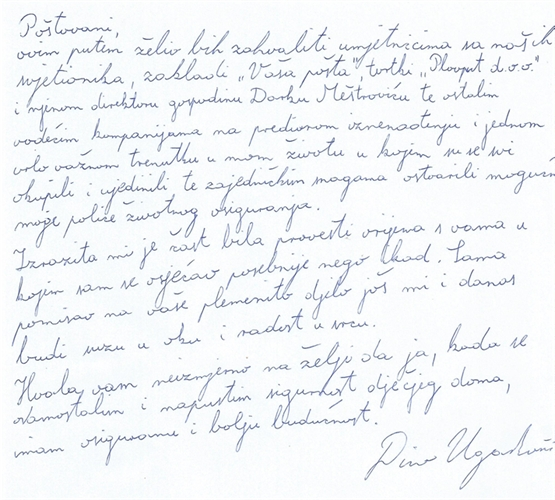 Poštovani,
ovim putem želio bih zahvaliti umjetnicima sa naših
svjetionika, zakladi "Vaša pošta", tvrtki "Plovput d.o.o."
i njenom direktoru gospodinu Darku Meštroviću te ostalim
vodećim kompanijama na predivnom iznenađenju i jednom
vrlo važnom trenutku u mom životu u kojem su se svi
okupili i ujedinili te zajedničkim snagama ostvarili moguć
moje police životnog osiguranja.
Izrazita mi je čast bila provesti vrijeme s vama u
kojem sam se osjećao posebnije nego ikad. Sama
pomisao na vaše plemenito djelo još mi i danas
budi suzu u oku i radost u srcu.
Hvala vam neizmjerno na želji da ja, kada se
osamostalim i napustim sigurnost dječjeg doma,
imam osiguranu i bolju budućnost.
Dino